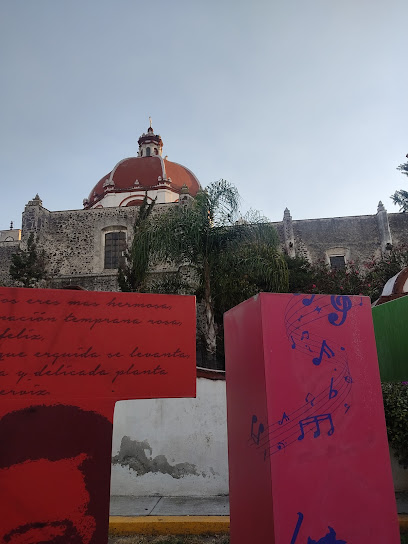 eres más hermosa,
nación temprana rosa,
feliz.
que erguida se levanta,
a y delicada planta
rviz.